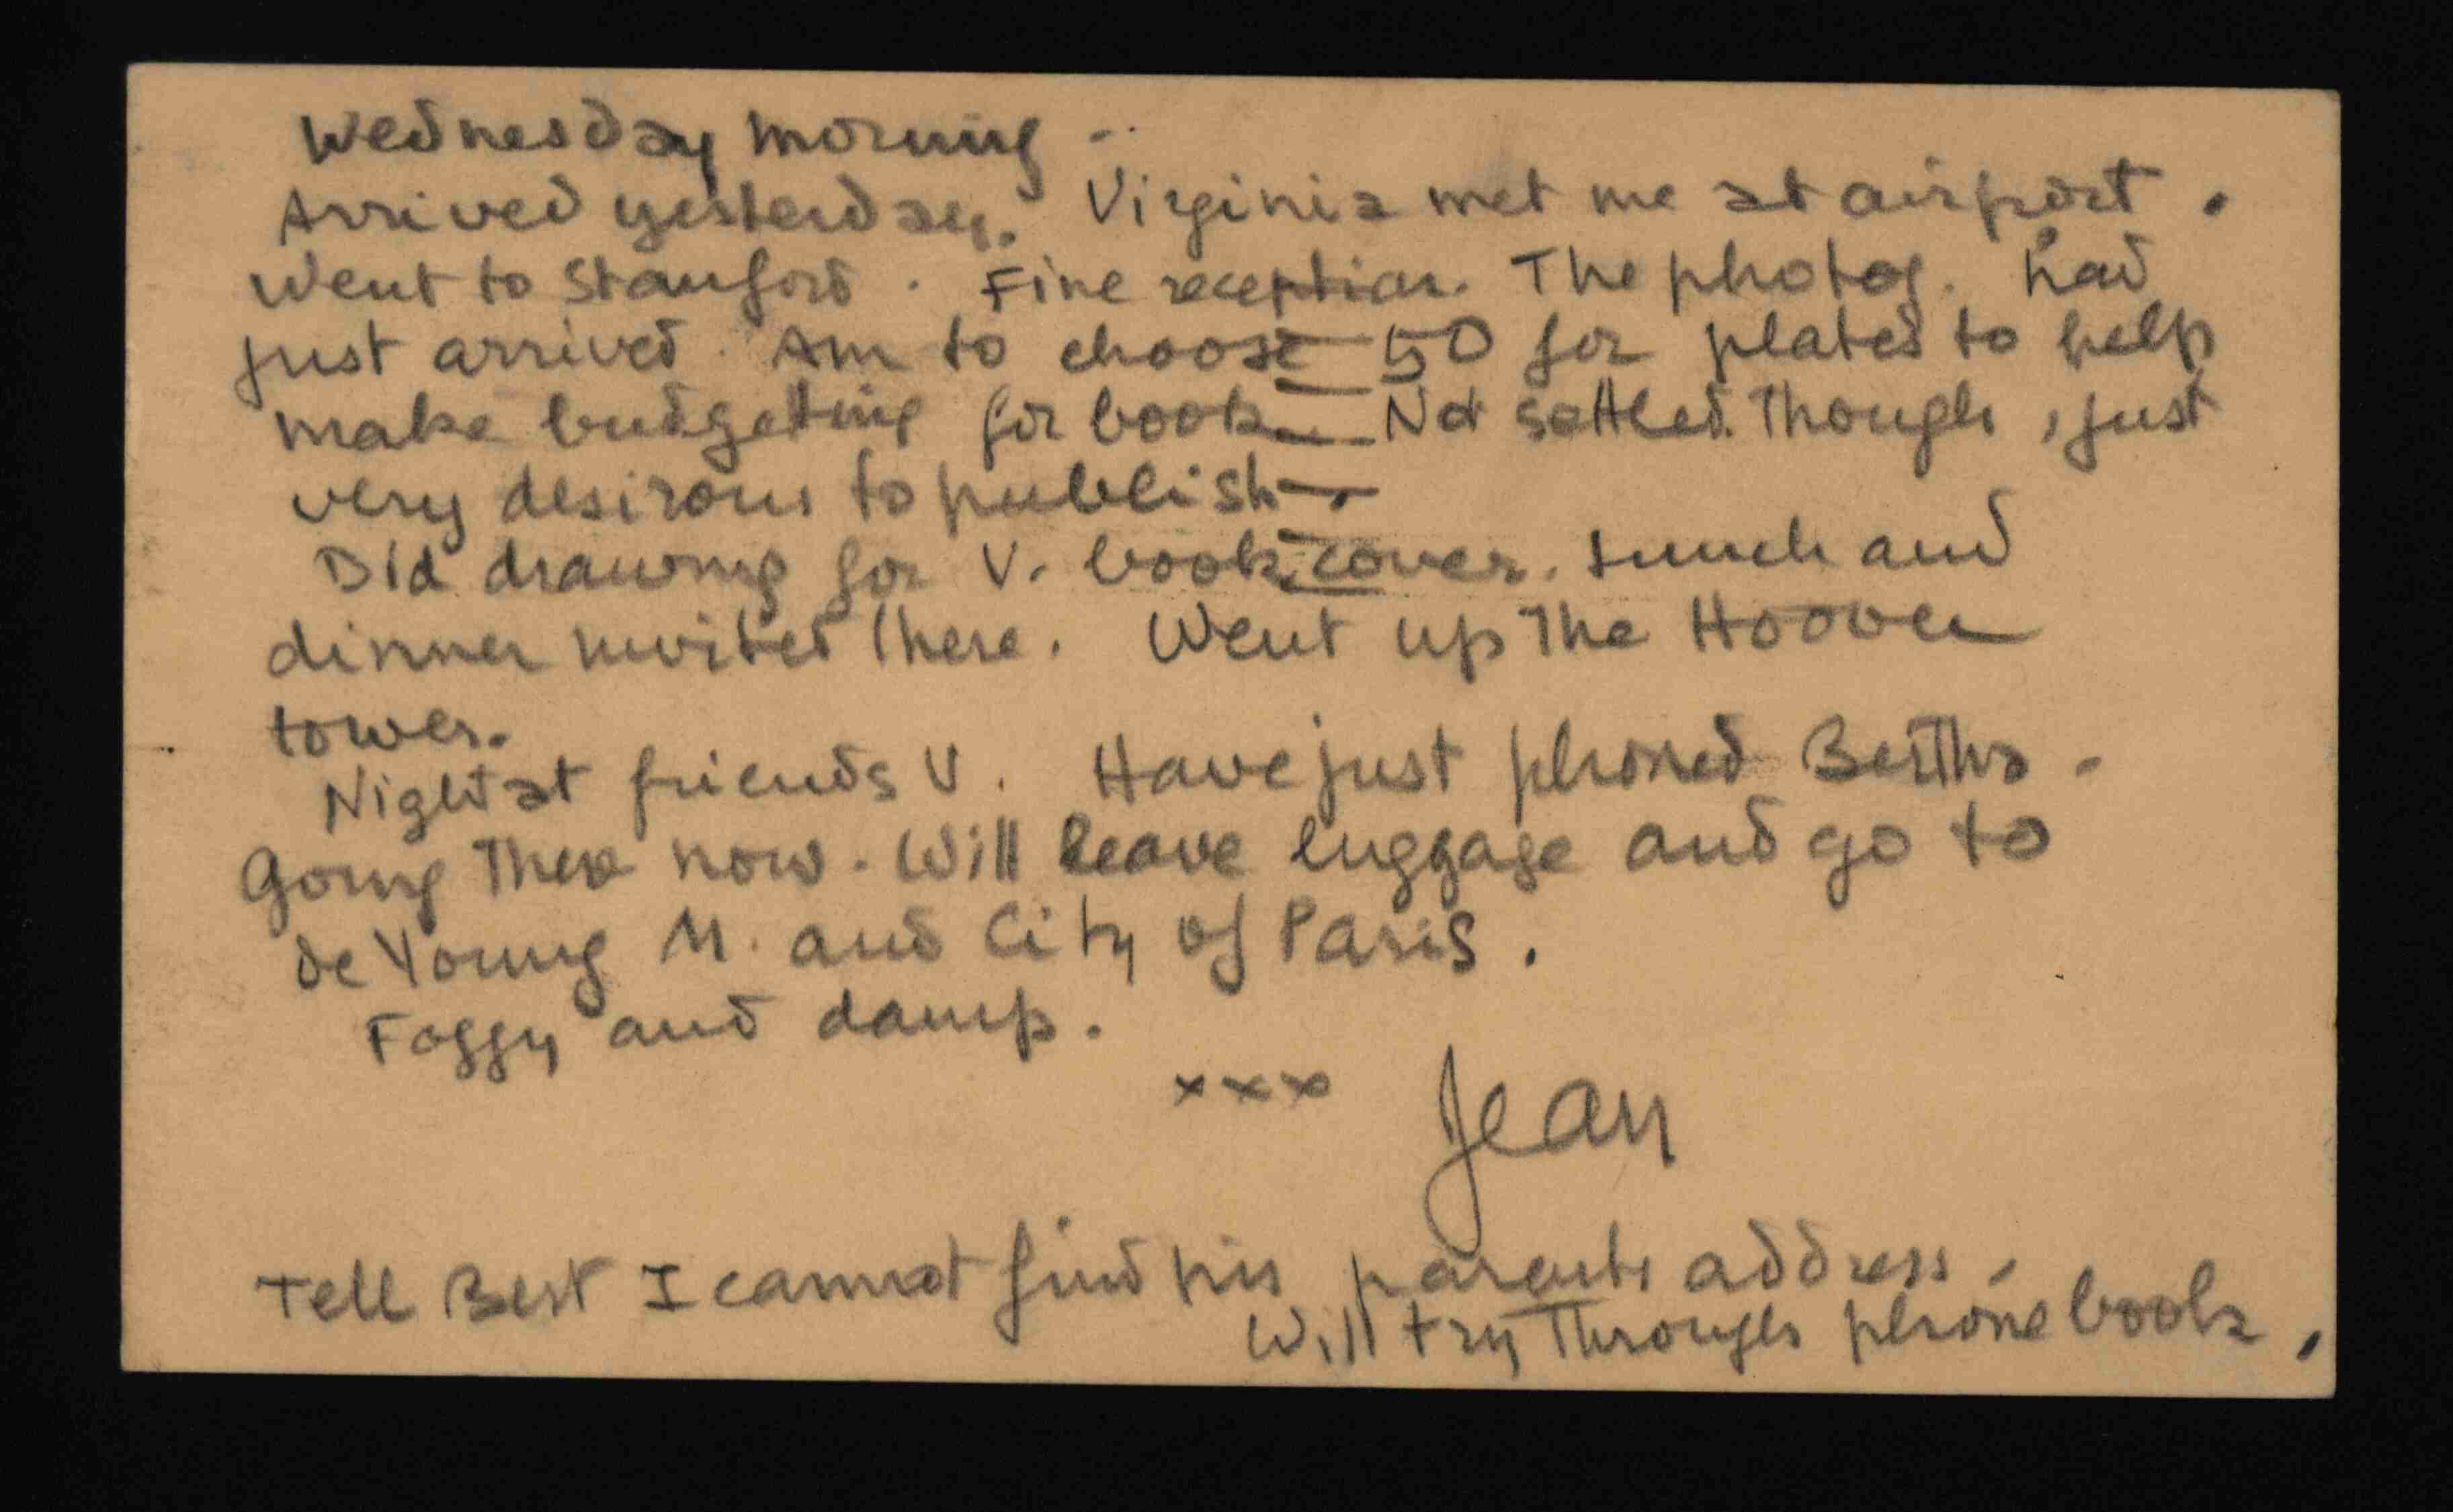 Wednesday morning -
Arrived yesterday. Virginia met me at airport.
Went to Stanford. Fine reception. The photog. had
just arrived. Am to choose 50 for plates to help
make budgeting for book - Not settled though, just
very desirous to publish -.
Did drawing for V. book cover. Lunch and
dinner invited there. Went up the Hoover
tower.
Night at friends V. Have just phoned Bertha -
Going there now. Will leave luggage and go to
de Young M. and City of Paris.
Foggy and damp.
xxx Jean
Tell Bert I cannot find his parents address -
Will try through phone book.